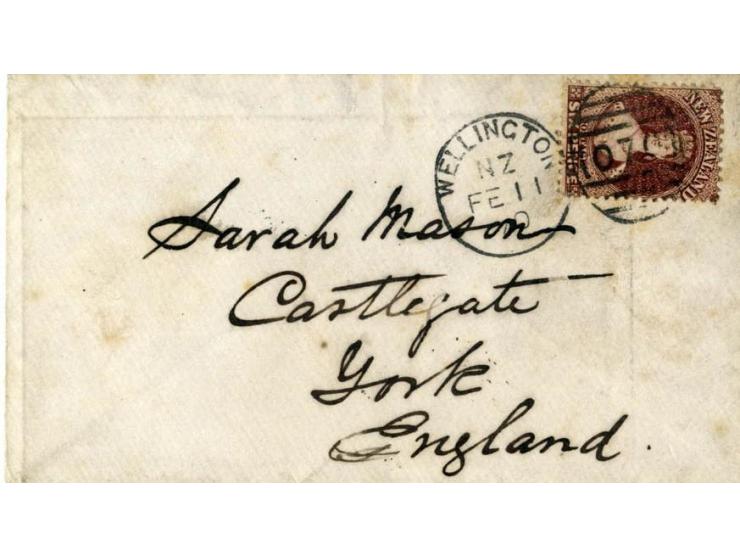 WELLINGTON
NZ
FE 11
NEW ZEALAND
070
Sarah Mason
Castlegate
York
England.